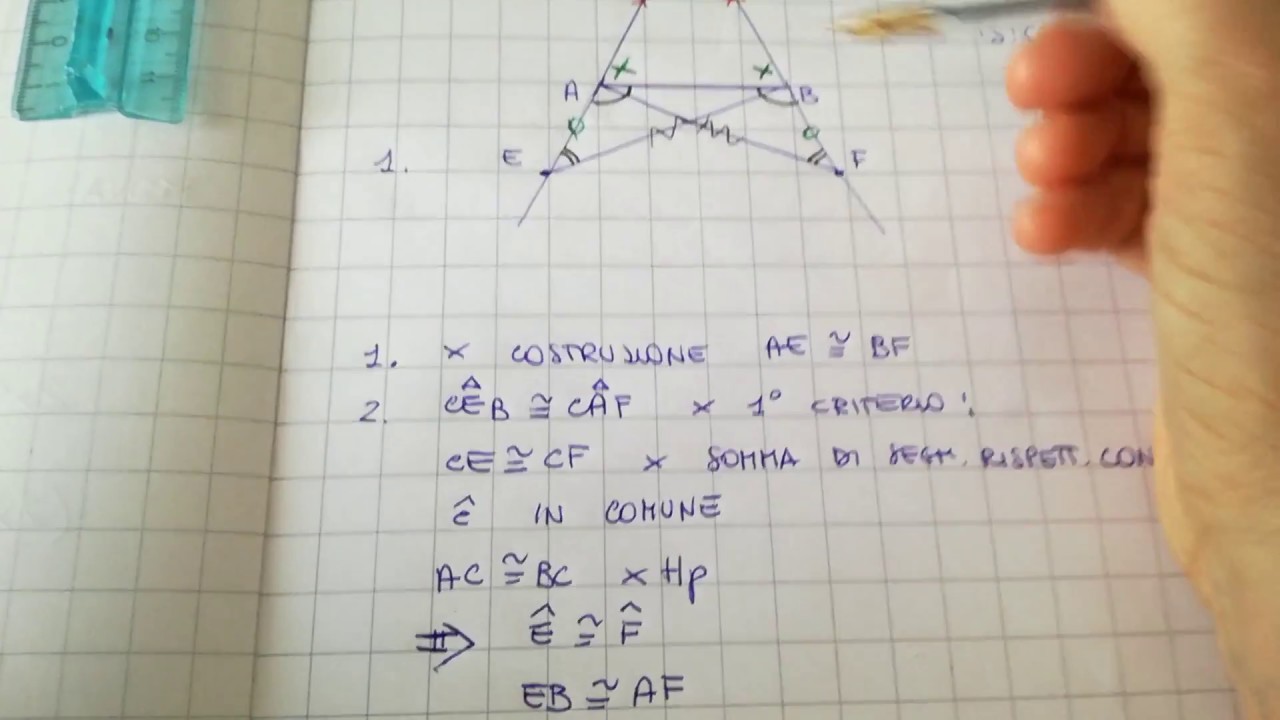 A B
1. E F
1. × COSTRUZIONE AE ≅ BF
2. CÊB ≅ CÂF × 1° CRITERIO:
CE ≅ CF × SOMMA DI SEGM. RISPETT. CON
Ĉ IN COMUNE
AC ≅ BC × Hp
⇒ Ê ≅ F̂
EB ≅ AF